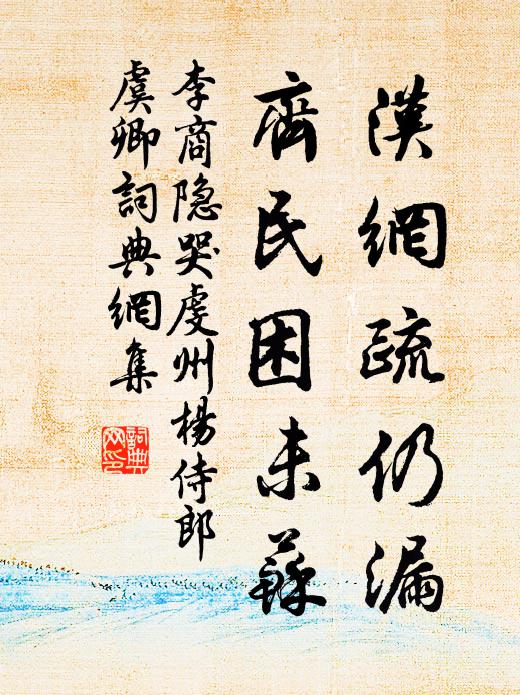 漢網疏仍漏
齊民困未蘇
李商隐哭虔州楊侍郎
虞卿詞典網集
詞典網印